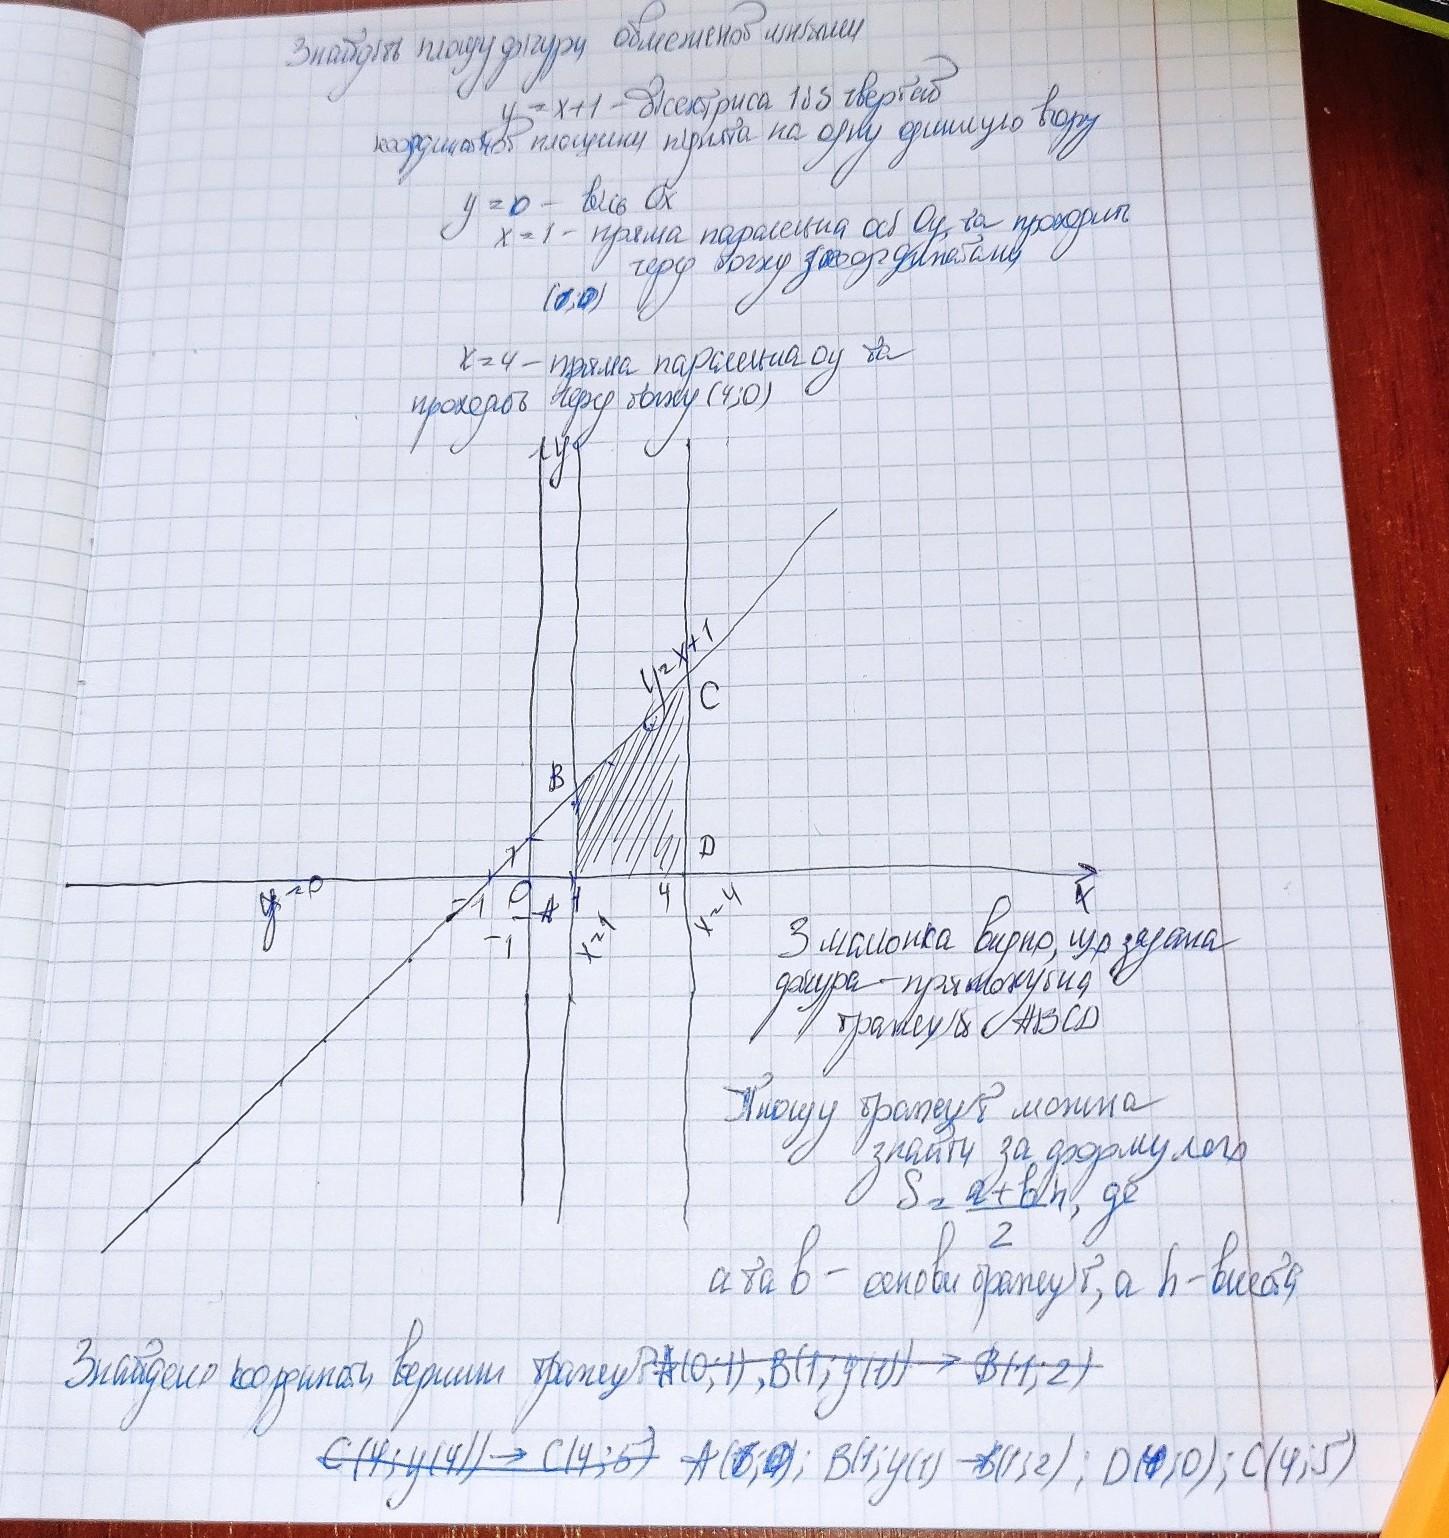 Знайдіть площу фігури обмеженої лініями
y = x+1 - бісектриса 1 і 3 чвертей
координатної площини піднята на одну одиницю вгору
y = 0 - вісь Ox
x = 1 - пряма паралельна осі Oy, та проходить
через точку з координатами
(1;0)
x = 4 - пряма паралельна Oy та
проходить через точку (4;0)
y
y=x+1
C
B
D
1
y=0
-1
0
A
1
4
x
-1
x=1
x=4
З малюнка видно, що задана
фігура - прямокутна
трапеція ABCD
Площу трапеції можна
знайти за формулою
S = a+b/2 h, де
a та b - основи трапеції, а h - висота
Знайдемо координати вершин трапеції A(0;1), B(1; y(1)) → B(1;2)
C(4; y(4)) → C(4;5) A(1;0); B(1; y(1) → B(1;2); D(4;0); C(4;5)